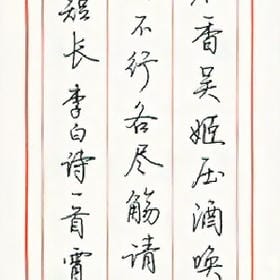 香吴姬压酒唤
不行各尽觞请
短长李白诗一首